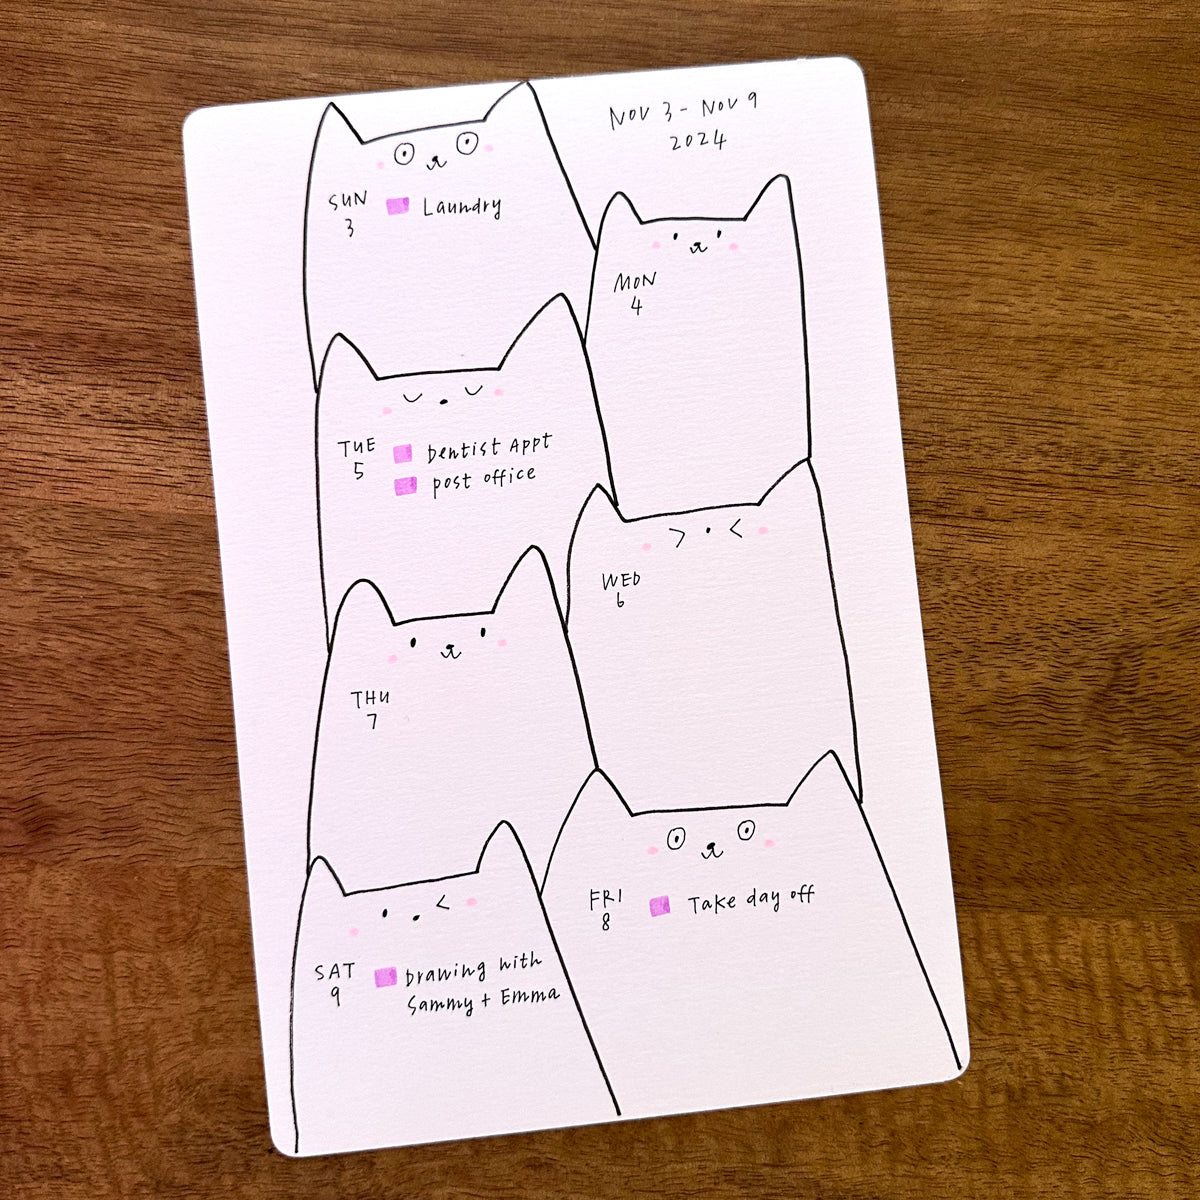 NOV 3 - NOV 9
2024
SUN
3
Laundry
MON
4
TUE
5
Dentist Appt
post office
WED
6
THU
7
FRI
8
Take day off
SAT
9
Drawing with
Sammy + Emma